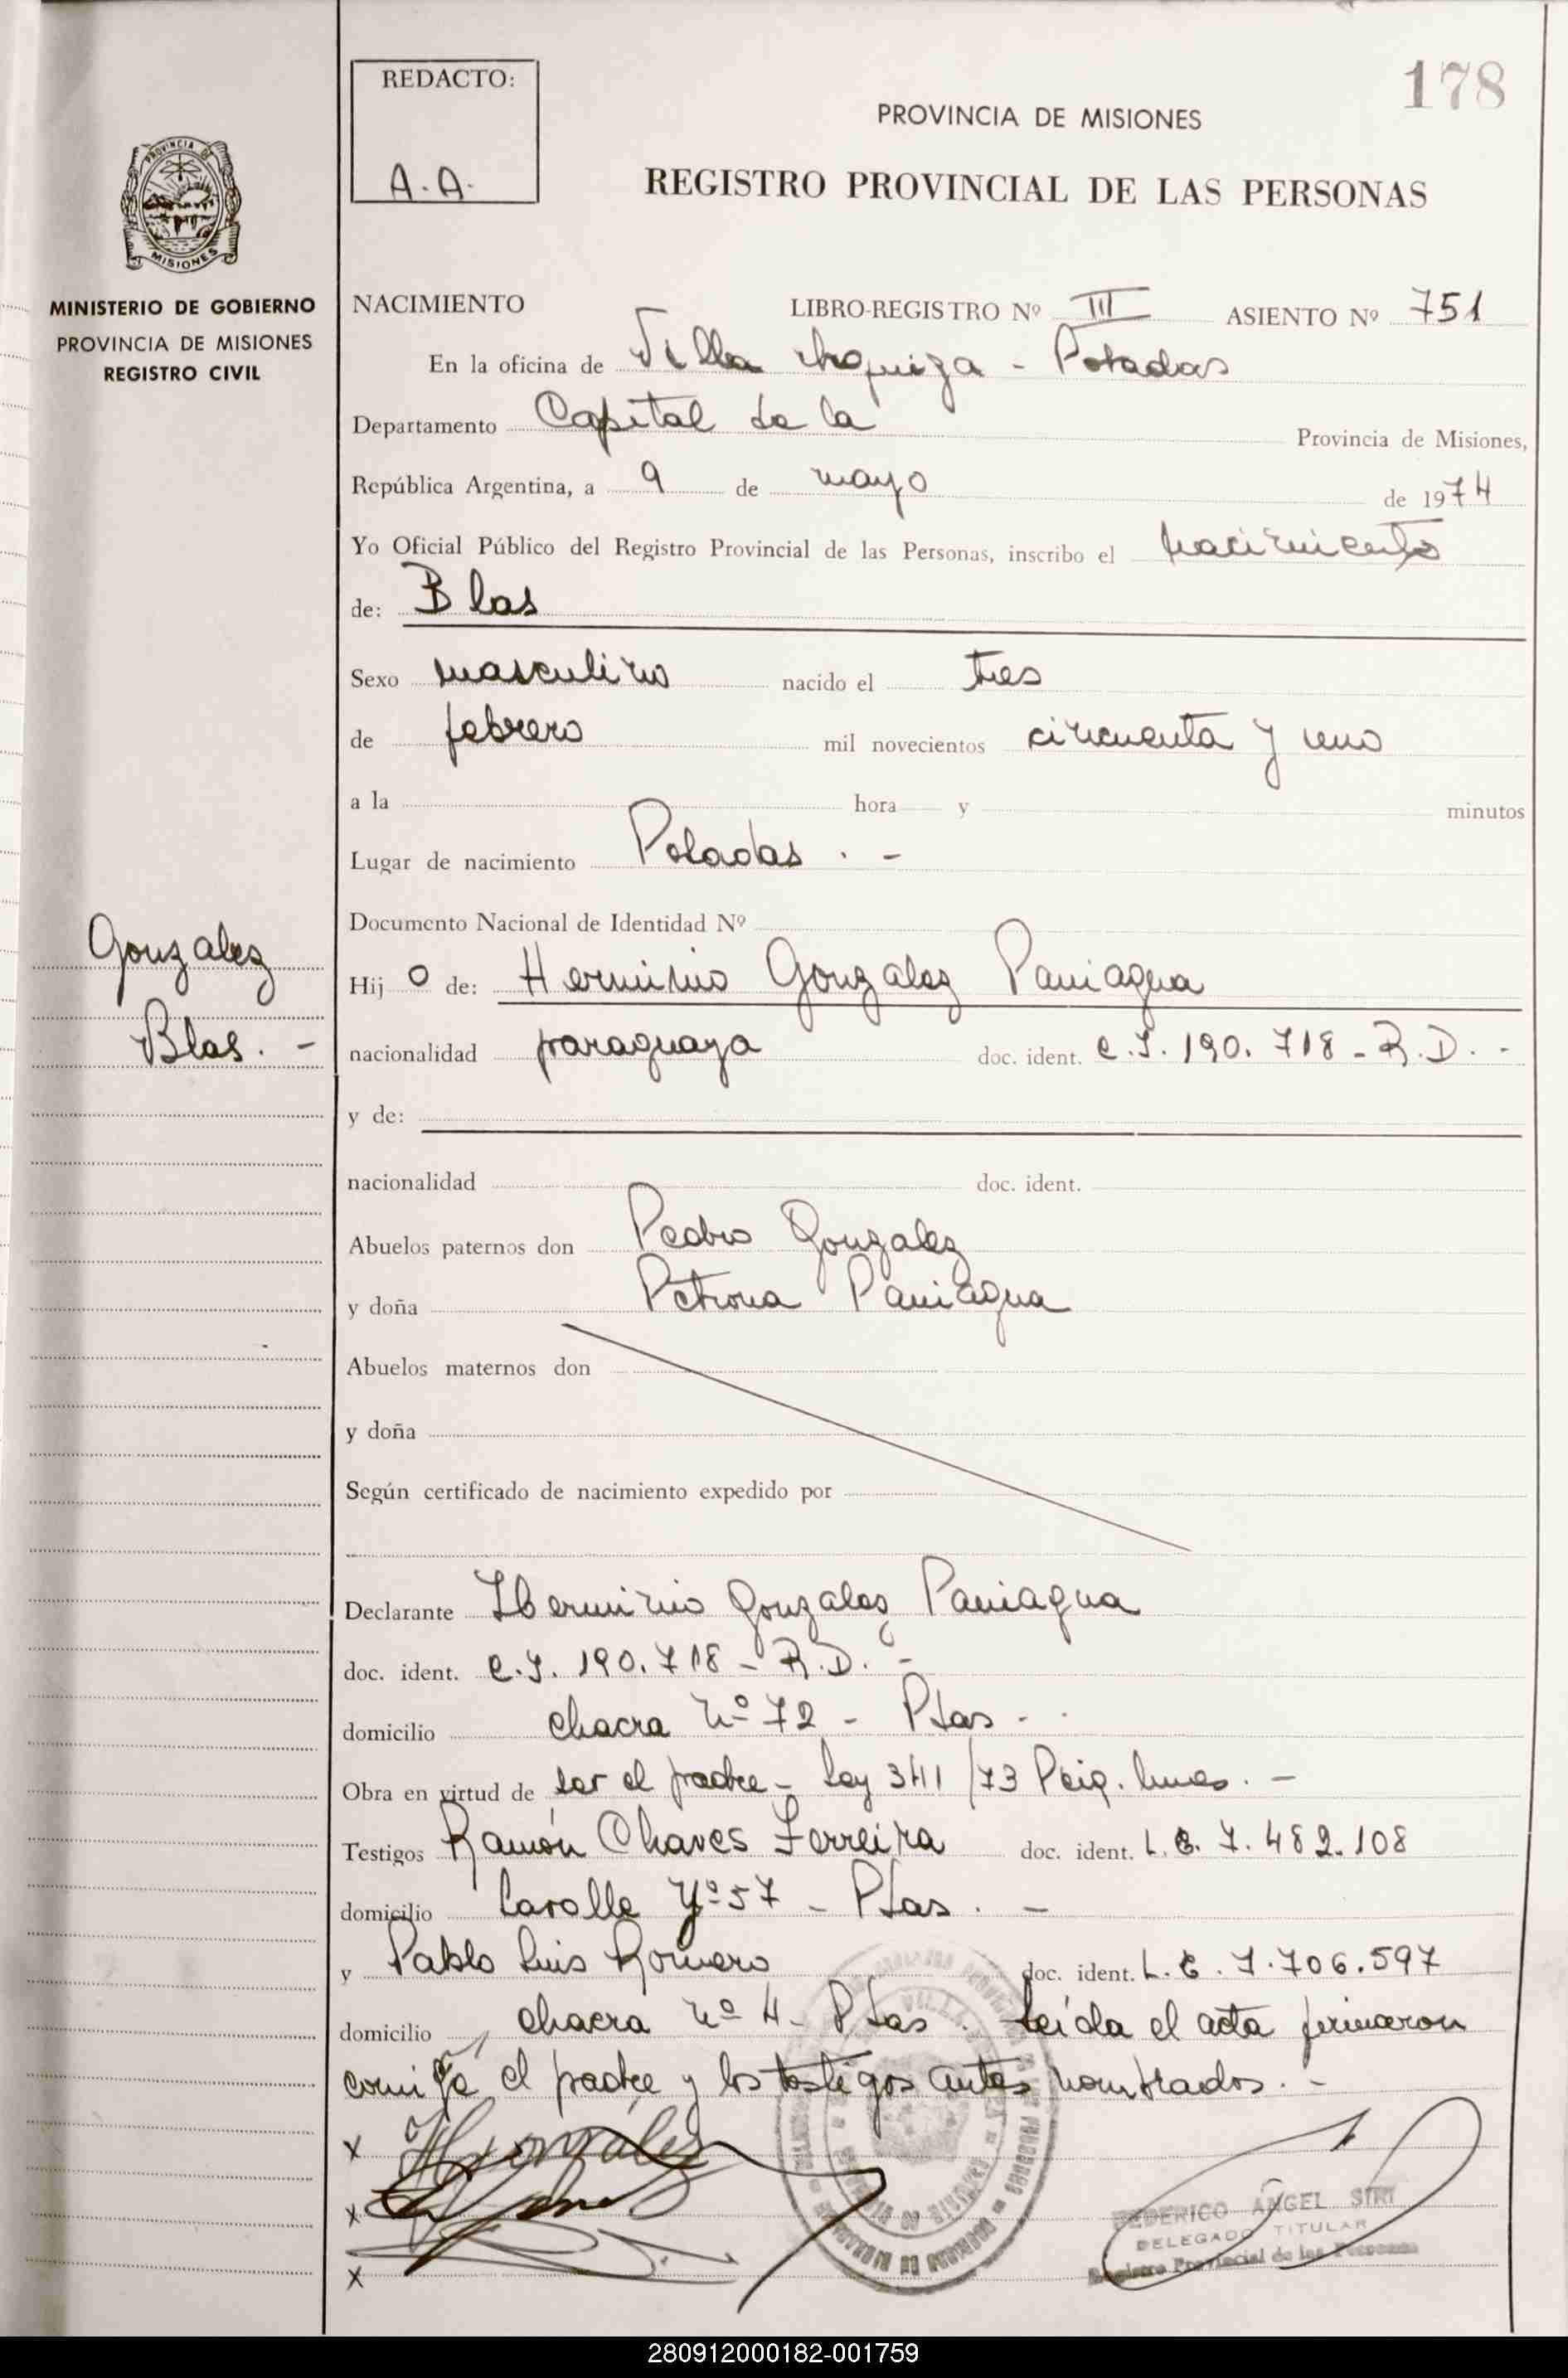 178
REDACTO:
A. A.
PROVINCIA DE MISIONES
REGISTRO PROVINCIAL DE LAS PERSONAS
PROVINCIA DE
MISIONES
MINISTERIO DE GOBIERNO
PROVINCIA DE MISIONES
REGISTRO CIVIL
NACIMIENTO LIBRO-REGISTRO Nº III ASIENTO Nº 751
En la oficina de Villa - Posadas
Departamento Capital de la Provincia de Misiones,
República Argentina, a 9 de mayo de 1974
Yo Oficial Público del Registro Provincial de las Personas, inscribo el nacimiento
de: Blas
Sexo masculino nacido el tres
de febrero mil novecientos cincuenta y uno
a la hora y minutos
Lugar de nacimiento Posadas . -
Documento Nacional de Identidad Nº
Gonzalez
Blas. -
Hij o de: Herminio Gonzalez Paniagua
nacionalidad paraguaya doc. ident. C.I. 190.718 - R.D. -
y de:
nacionalidad doc. ident.
Abuelos paternos don Pedro Gonzalez
y doña Petrona Paniagua
Abuelos maternos don
y doña
Según certificado de nacimiento expedido por
Declarante Herminio Gonzalez Paniagua
doc. ident. C.I. 190.718 - R.D. -
domicilio chacra nº 72 - Pdas - .
Obra en virtud de ser el padre - Ley 341/73
Testigos Ramón Chaves Ferreira doc. ident. L.E. 7.482.108
domicilio Lavalle Nº 57 - Pdas . -
y Pablo Luis Romero doc. ident. L.E. 7.706.597
domicilio chacra nº 4 - Pdas . Leída el acta firmaron
conmigo el padre y los testigos antes nombrados. -
x H Gonzáles
x
x
FEDERICO ANGEL SIRI
DELEGADO TITULAR
Registro Provincial de las Personas
280912000182-001759